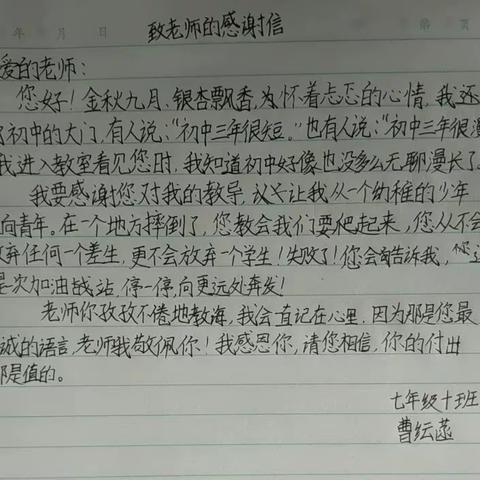 年 月 日 第 页
致老师的感谢信
爱的老师：
您好！金秋九月、银杏飘香，为怀着忐忑的心情，我还
初中的大门，有人说：“初中三年很短。”也有人说：“初中三年很漫
我进入教室看见您时，我知道初中好像也没多么无聊漫长了。
我要感谢您对我的教导，让我从一个幼稚的少年
向青年。在一个地方摔倒了，您教会我们要爬起来，您从不会
放弃任何一个差生，更不会放弃一个学生！失败了！您会告诉我，
是次加油战站，停一停，向更远处奔发！
老师你孜孜不倦地教海，我会一直记在心里，因为那是您最
诚的语言，老师我敬佩你！我感恩你，请您相信，你的付出
都是值的。
七年级十班
曹纭菡